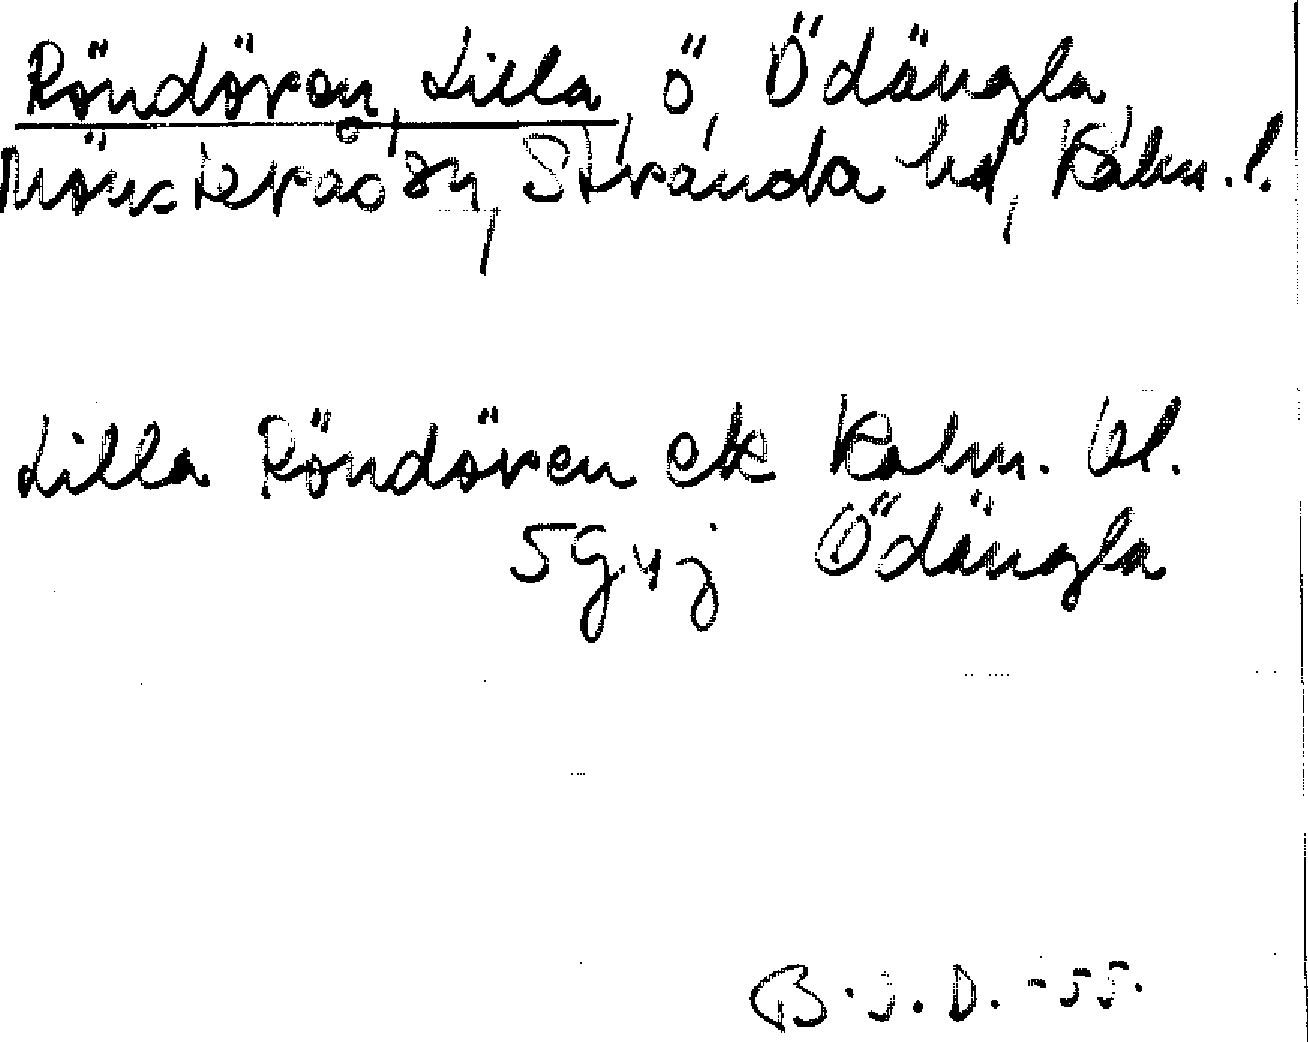 Röndören, Lilla, ö, Ödängla,
Mönsterås sn, Stranda hd, Kalm. l.
Lilla Röndören ek Kalm. bl.
5G4j Ödängla
B.J.D. -55.